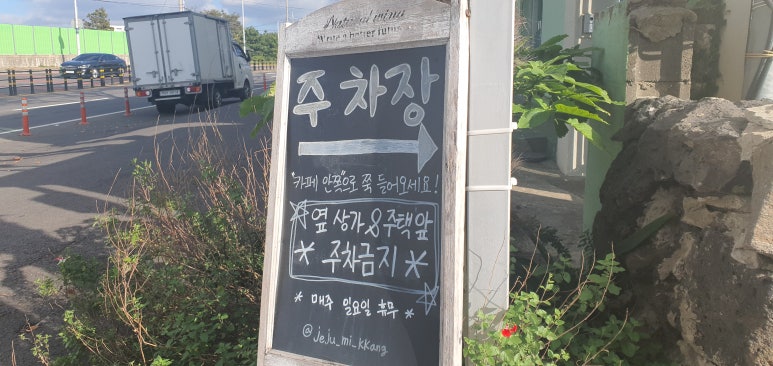 Natural mind
Write a better future
주차장
"카페 안쪽"으로 쭉 들어오세요!
옆 상가 & 주택 앞
* 주차금지 *
* 매주 일요일 휴무 *
@jeju_mi_kkang